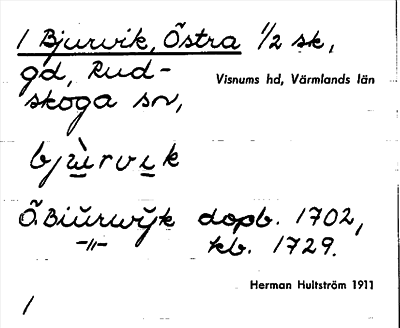 1 Bjurvik, Östra 1/2 sk,
gd, Rud-
skoga sn,
Visnums hd, Värmlands län
bjùrvik
Ö. Biŭrwÿk dopb. 1702,
-"- kb. 1729.
Herman Hultström 1911
1